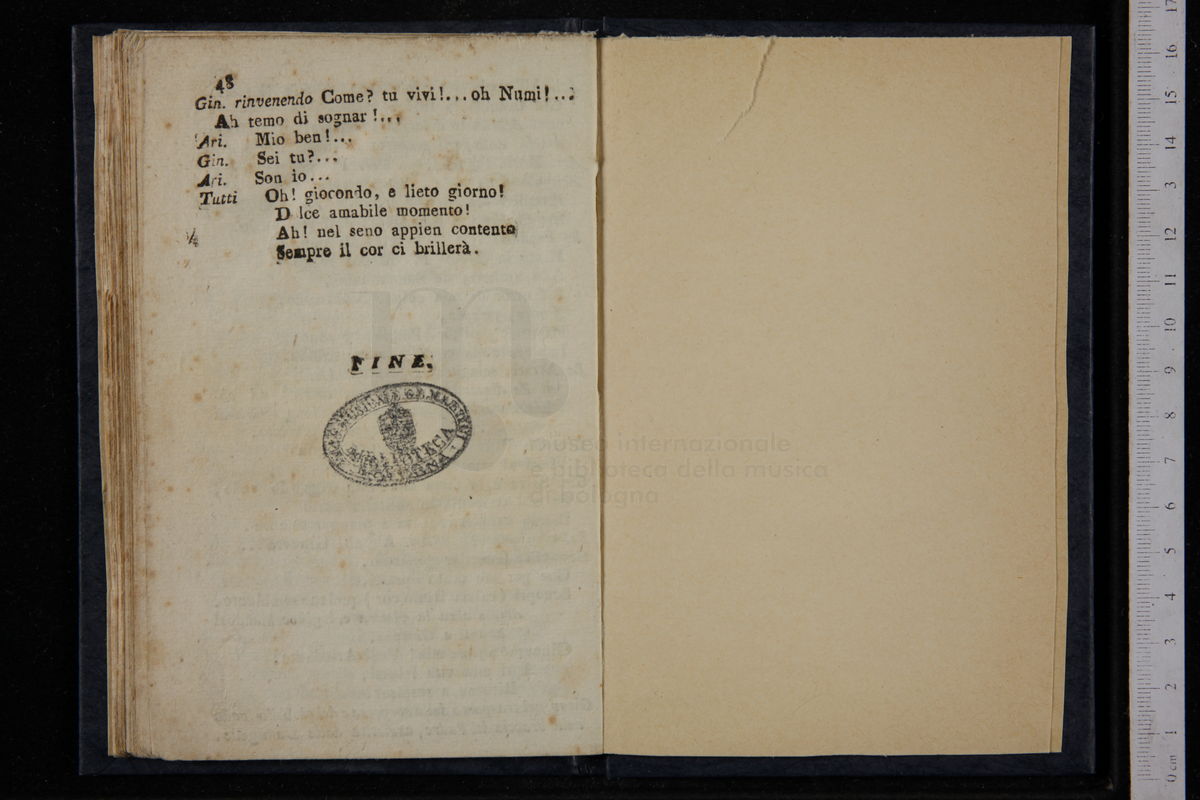 48
Gin. rinvenendo Come? tu vivi!...oh Numi!...
Ah temo di sognar!...
Ari. Mio ben!...
Gin. Sei tu?...
Ari. Son io...
Tutti Oh! giocondo, e lieto giorno!
D lce amabile momento!
Ah! nel seno appien contento
Sempre il cor ci brillerà.
FINE.
BIBLIOTECA
BOLOGNA
museo internazionale
e biblioteca della musica
di bologna
0 cm 1 2 3 4 5 6 7 8 9 10 11 12 13 14 15 16 17